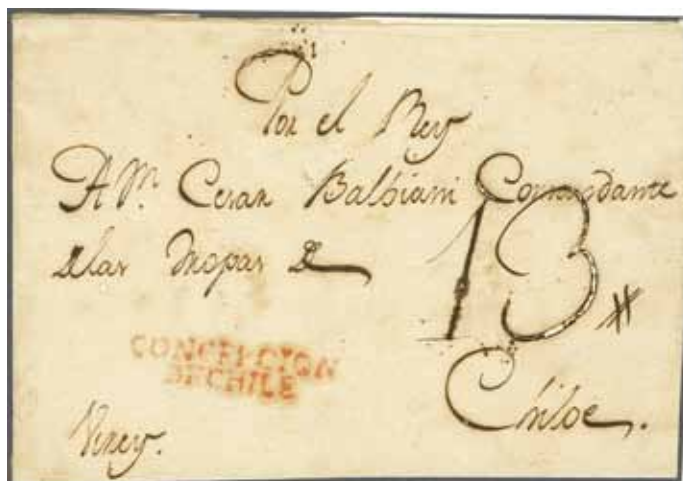 Por el Rey
A Dn. Cesar Balbiani Comandante
de las tropas de
13
CONCEPCION
DE CHILE
Chiloe.
Virrey.